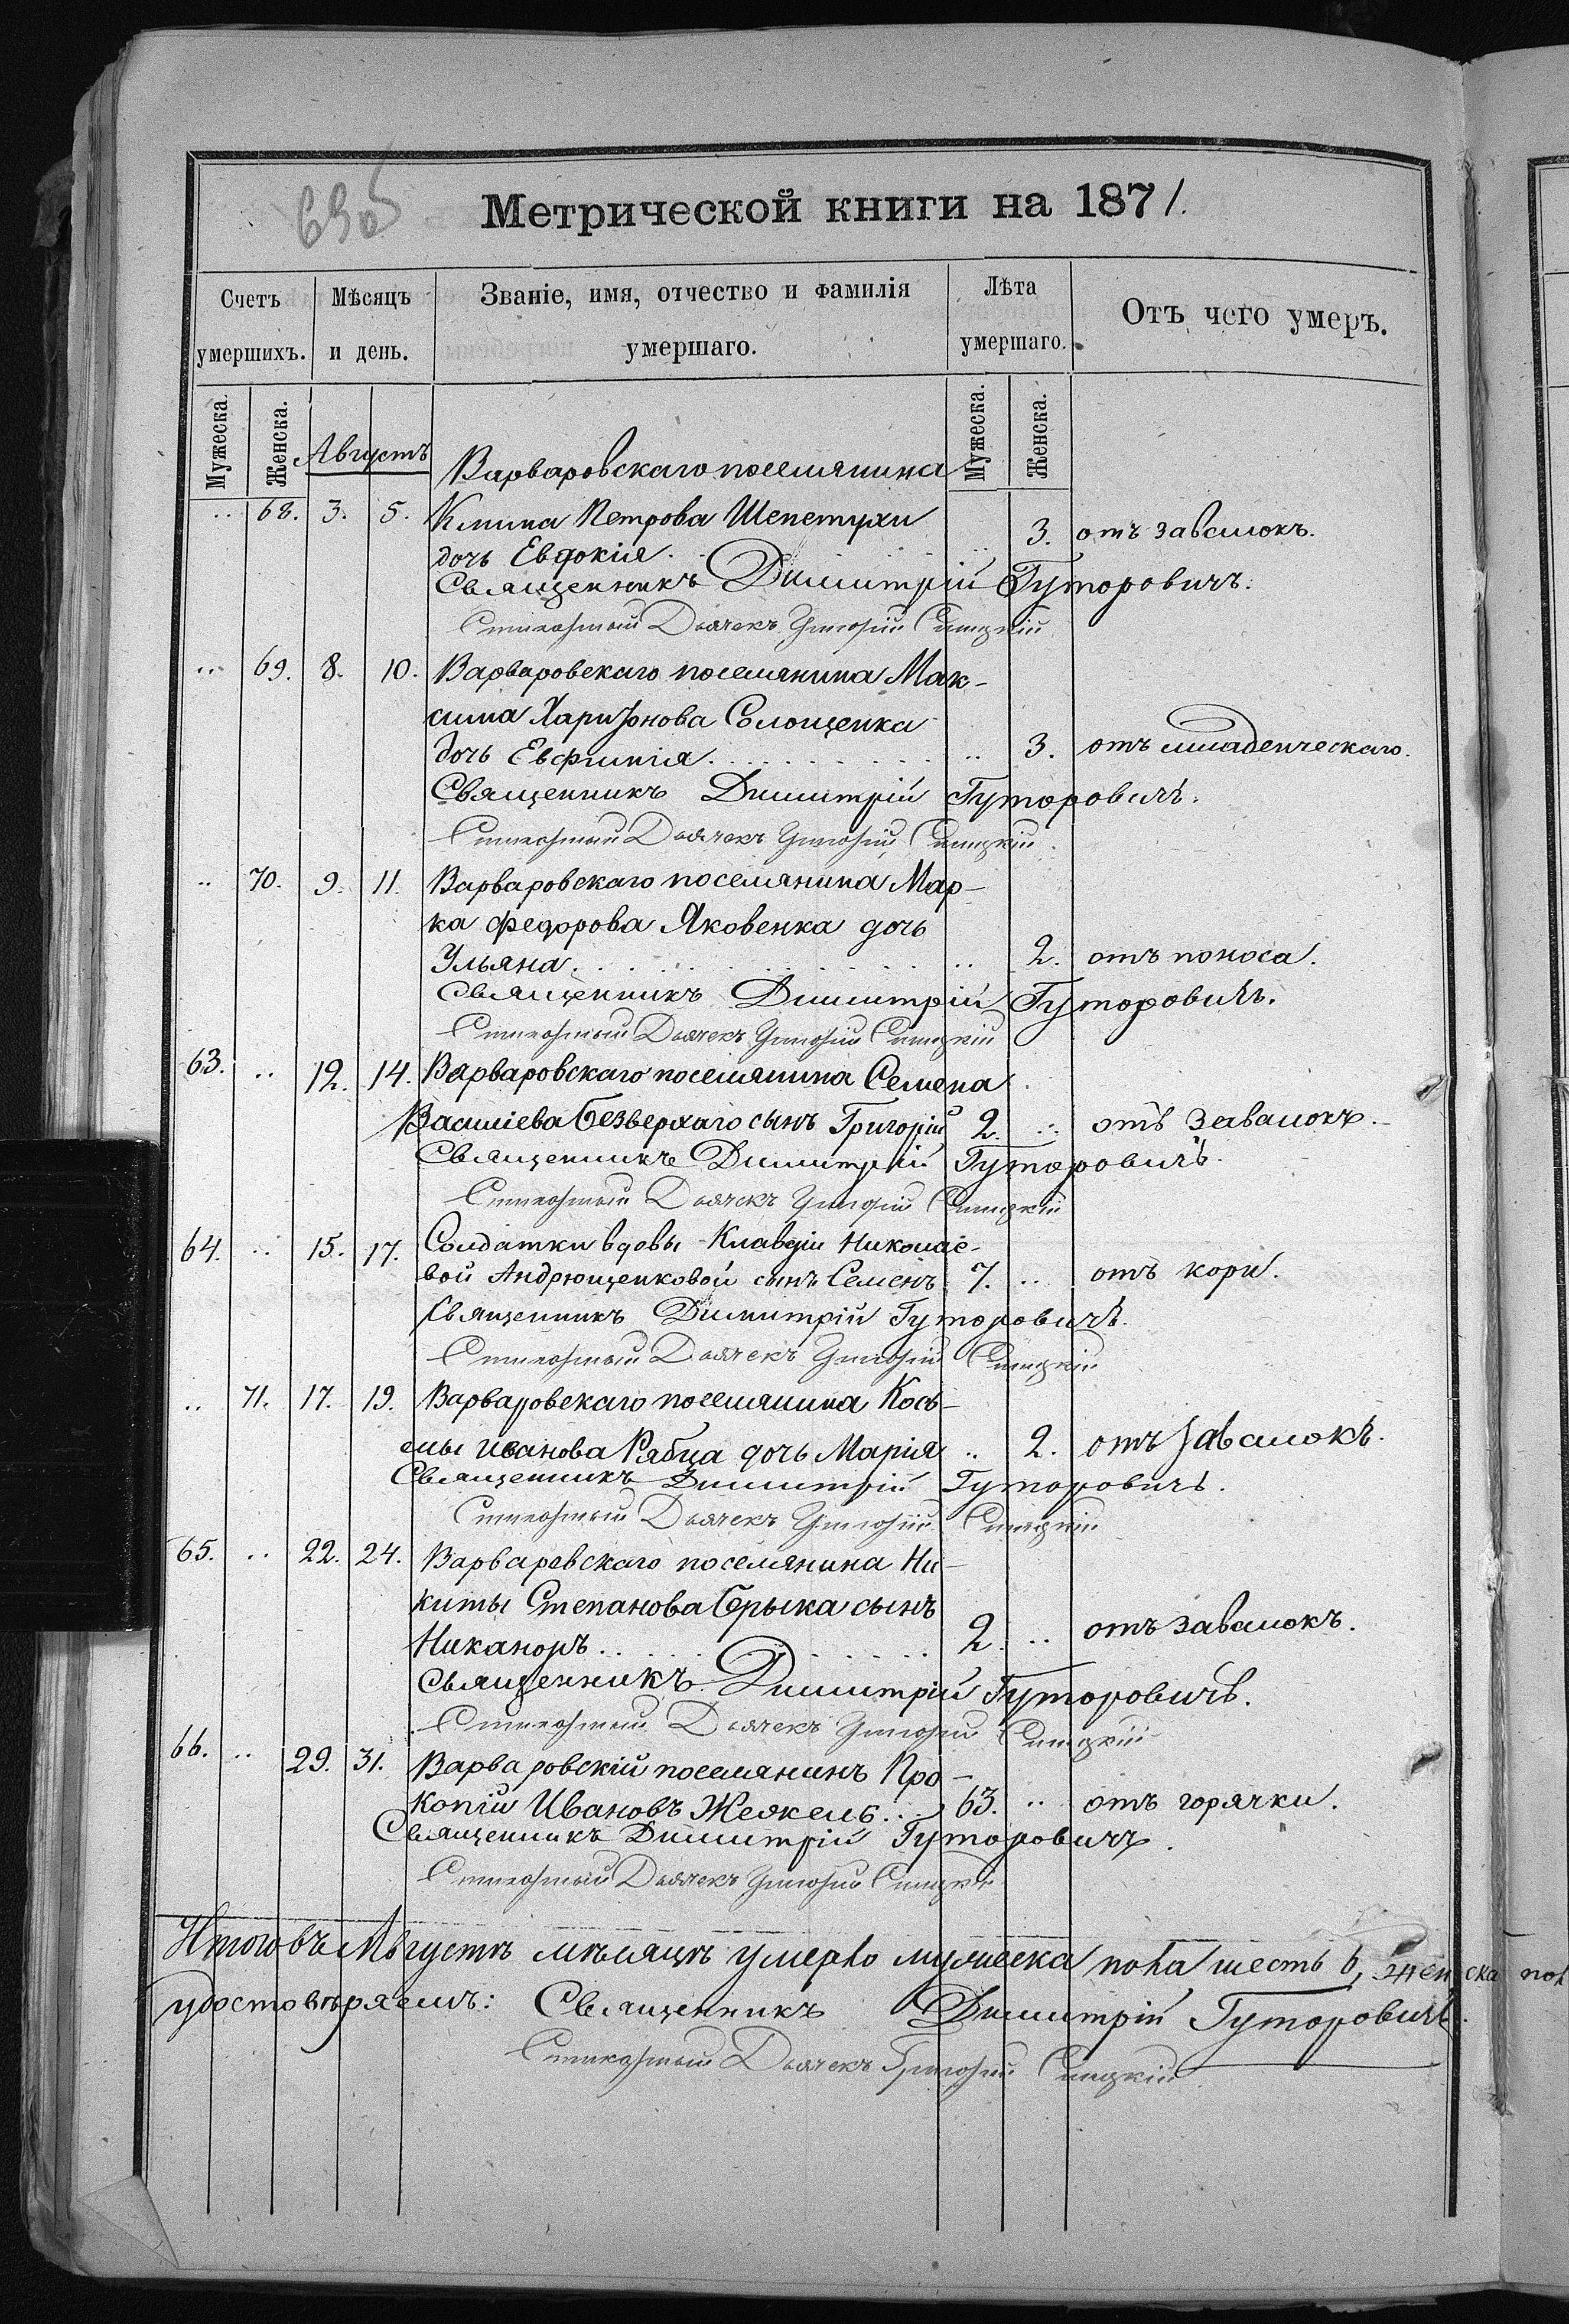 Метрической книги на 1871.
Счетъ умершихъ.
Мѣсяцъ и день.
Званіе, имя, отчество и фамилія умершаго.
Лѣта умершаго.
Отъ чего умеръ.
Мужеска. Женска. Августъ Мужеска. Женска.
Варваровскаго поселянина
.. 68. 3. 5. Клима Петрова Шепетухи
дочь Евдокія. .. 3. отъ завалокъ.
Священникъ Димитрій Гуторовичъ.
Дьячекъ Григорій
... 69. 8. 10. Варваровскаго поселянина Мак-
сима Харитонова Солощенка
дочь Евфимія. .. 3. отъ младенческаго.
Священникъ Димитрій Гуторовичъ.
Дьячекъ Григорій
.. 70. 9. 11. Варваровскаго поселянина Мар-
ка Федорова Яковенка дочь
Ульяна. .. 2. отъ поноса.
Священникъ Димитрій Гуторовичъ.
Дьячекъ Григорій
63. .. 12. 14. Варваровскаго поселянина Семена
Василіева Безверхаго сынъ Григорій 2. .. отъ завалокъ.
Священникъ Димитрій Гуторовичъ.
Дьячекъ Григорій
64. .. 15. 17. Солдатки вдовы Клавдіи Николае-
вой Андрющенковой сынъ Семенъ 7. .. отъ кори.
Священникъ Димитрій Гуторовичъ.
Дьячекъ Григорій
.. 71. 17. 19. Варваровскаго поселянина Кось-
мы Иванова Рябца дочь Марія .. 2. отъ завалокъ.
Священникъ Димитрій Гуторовичъ.
Дьячекъ Григорій
65. .. 22. 24. Варваровскаго поселянина Ни-
киты Степанова сынъ
Никаноръ. 2. .. отъ завалокъ.
Священникъ Димитрій Гуторовичъ.
Дьячекъ Григорій
66. .. 29. 31. Варваровскій поселянинъ Про-
копій Ивановъ 63. .. отъ горячки.
Священникъ Димитрій Гуторовичъ.
Дьячекъ Григорій
Итого въ Августѣ мѣсяцѣ умерло мужеска пола шесть 6, женска пол
удостовѣряемъ: Священникъ Димитрій Гуторовичъ.
Дьячекъ Григорій